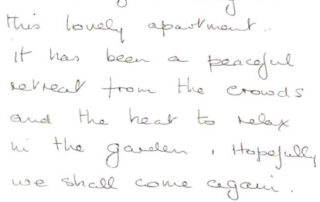 this lovely apartment..
it has been a peaceful
retreat from the crowds
and the heat to relax
in the garden, Hopefully
we shall come again.